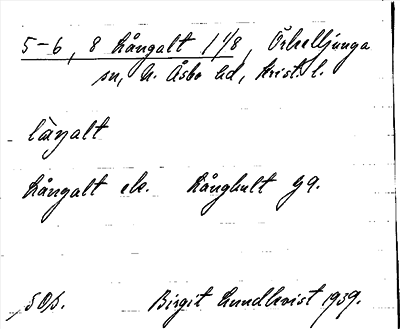 5-6, 8 Långalt 1 1/8, Örkelljunga
sn, N. Åsbo hd, Krist. l.
Långalt ek. Långhult G9.
SOÄ. Birgit Lundkvist 1939.